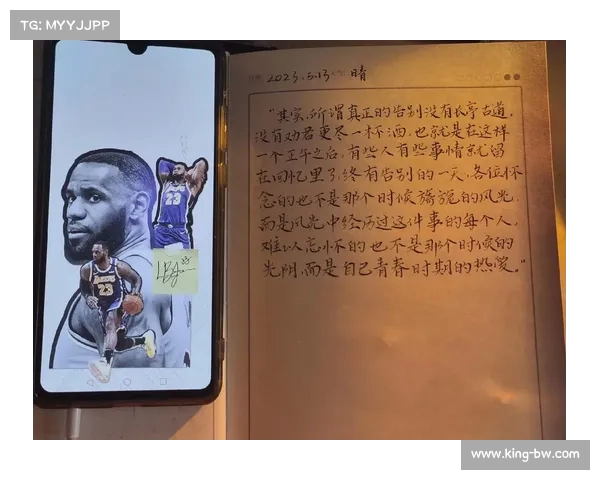 TG: MYYJJPP
日期 2023.5.13 天气 晴
"其实,所谓真正的告别没有长亭古道,
没有劝君更尽一杯酒,也就是在这样
一个正午之后,有些人有些事情就留
在回忆里了,终有告别的一天,各位怀
念的也不是那个时候旖旎的风光,
而是风光中经历过这件事的每个人,
难以忘怀的也不是那个时候的
光阴,而是自己青春时期的热爱。"
23
LAKERS
23
LBJ
www.king-bw.com